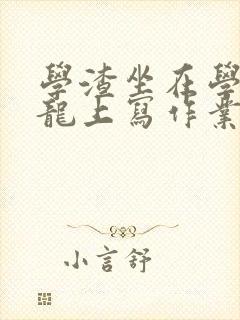 學渣坐在學
龍上寫作業
小言舒